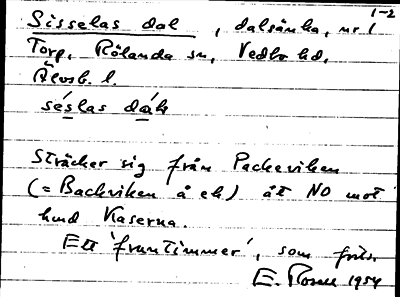 1-2
Sisselas dal, dalsänka, nr 1
Torp, Rölanda sn, Vedbo hd,
Älvsb. l.
séslas dah
Sträcker sig från Packeviken
(= Backviken å ek) åt NO mot
hmd Kaserna.
Ett 'fruntimmer', som
E. 1954